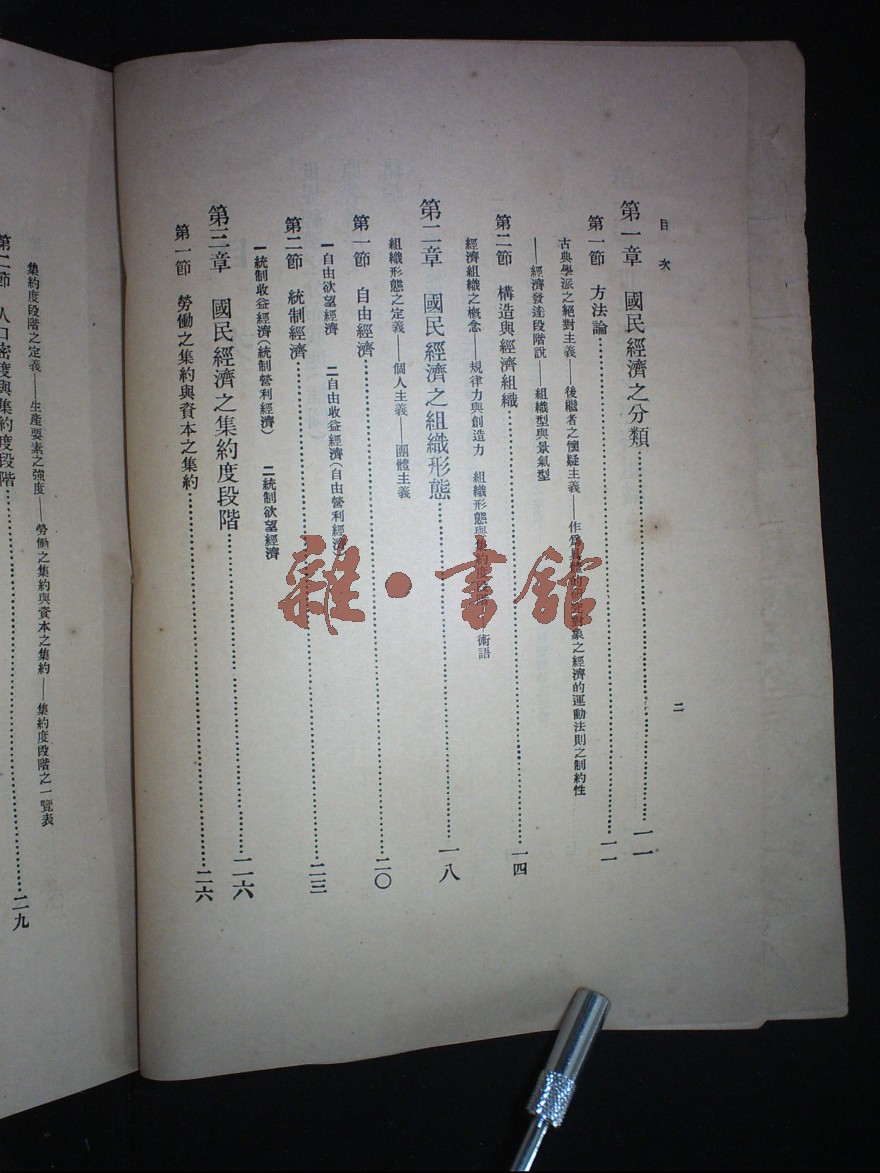 目次
二
第一章 國民經濟之分類………一一
第一節 方法論………一一
古典學派之絕對主義——後繼者之懷疑主義——作爲 對象之經濟的運動法則之制約性
——經濟發達段階說——組織型與景氣型
第二節 構造與經濟組織………一四
經濟組織之概念——規律力與創造力 組織形態與集約度段階——術語
第二章 國民經濟之組織形態………一八
組織形態之定義——個人主義——團體主義
第一節 自由經濟………二〇
一自由欲望經濟 二自由收益經濟(自由營利經濟)
第二節 統制經濟………二三
一統制收益經濟(統制營利經濟) 二統制欲望經濟
第三章 國民經濟之集約度段階………二六
第一節 勞働之集約與資本之集約………二六
集約度段階之定義——生產要素之強度——勞働之集約與資本之集約——集約度段階之一覽表
第二節 人口密度與集約度段階………二九
雜·書館